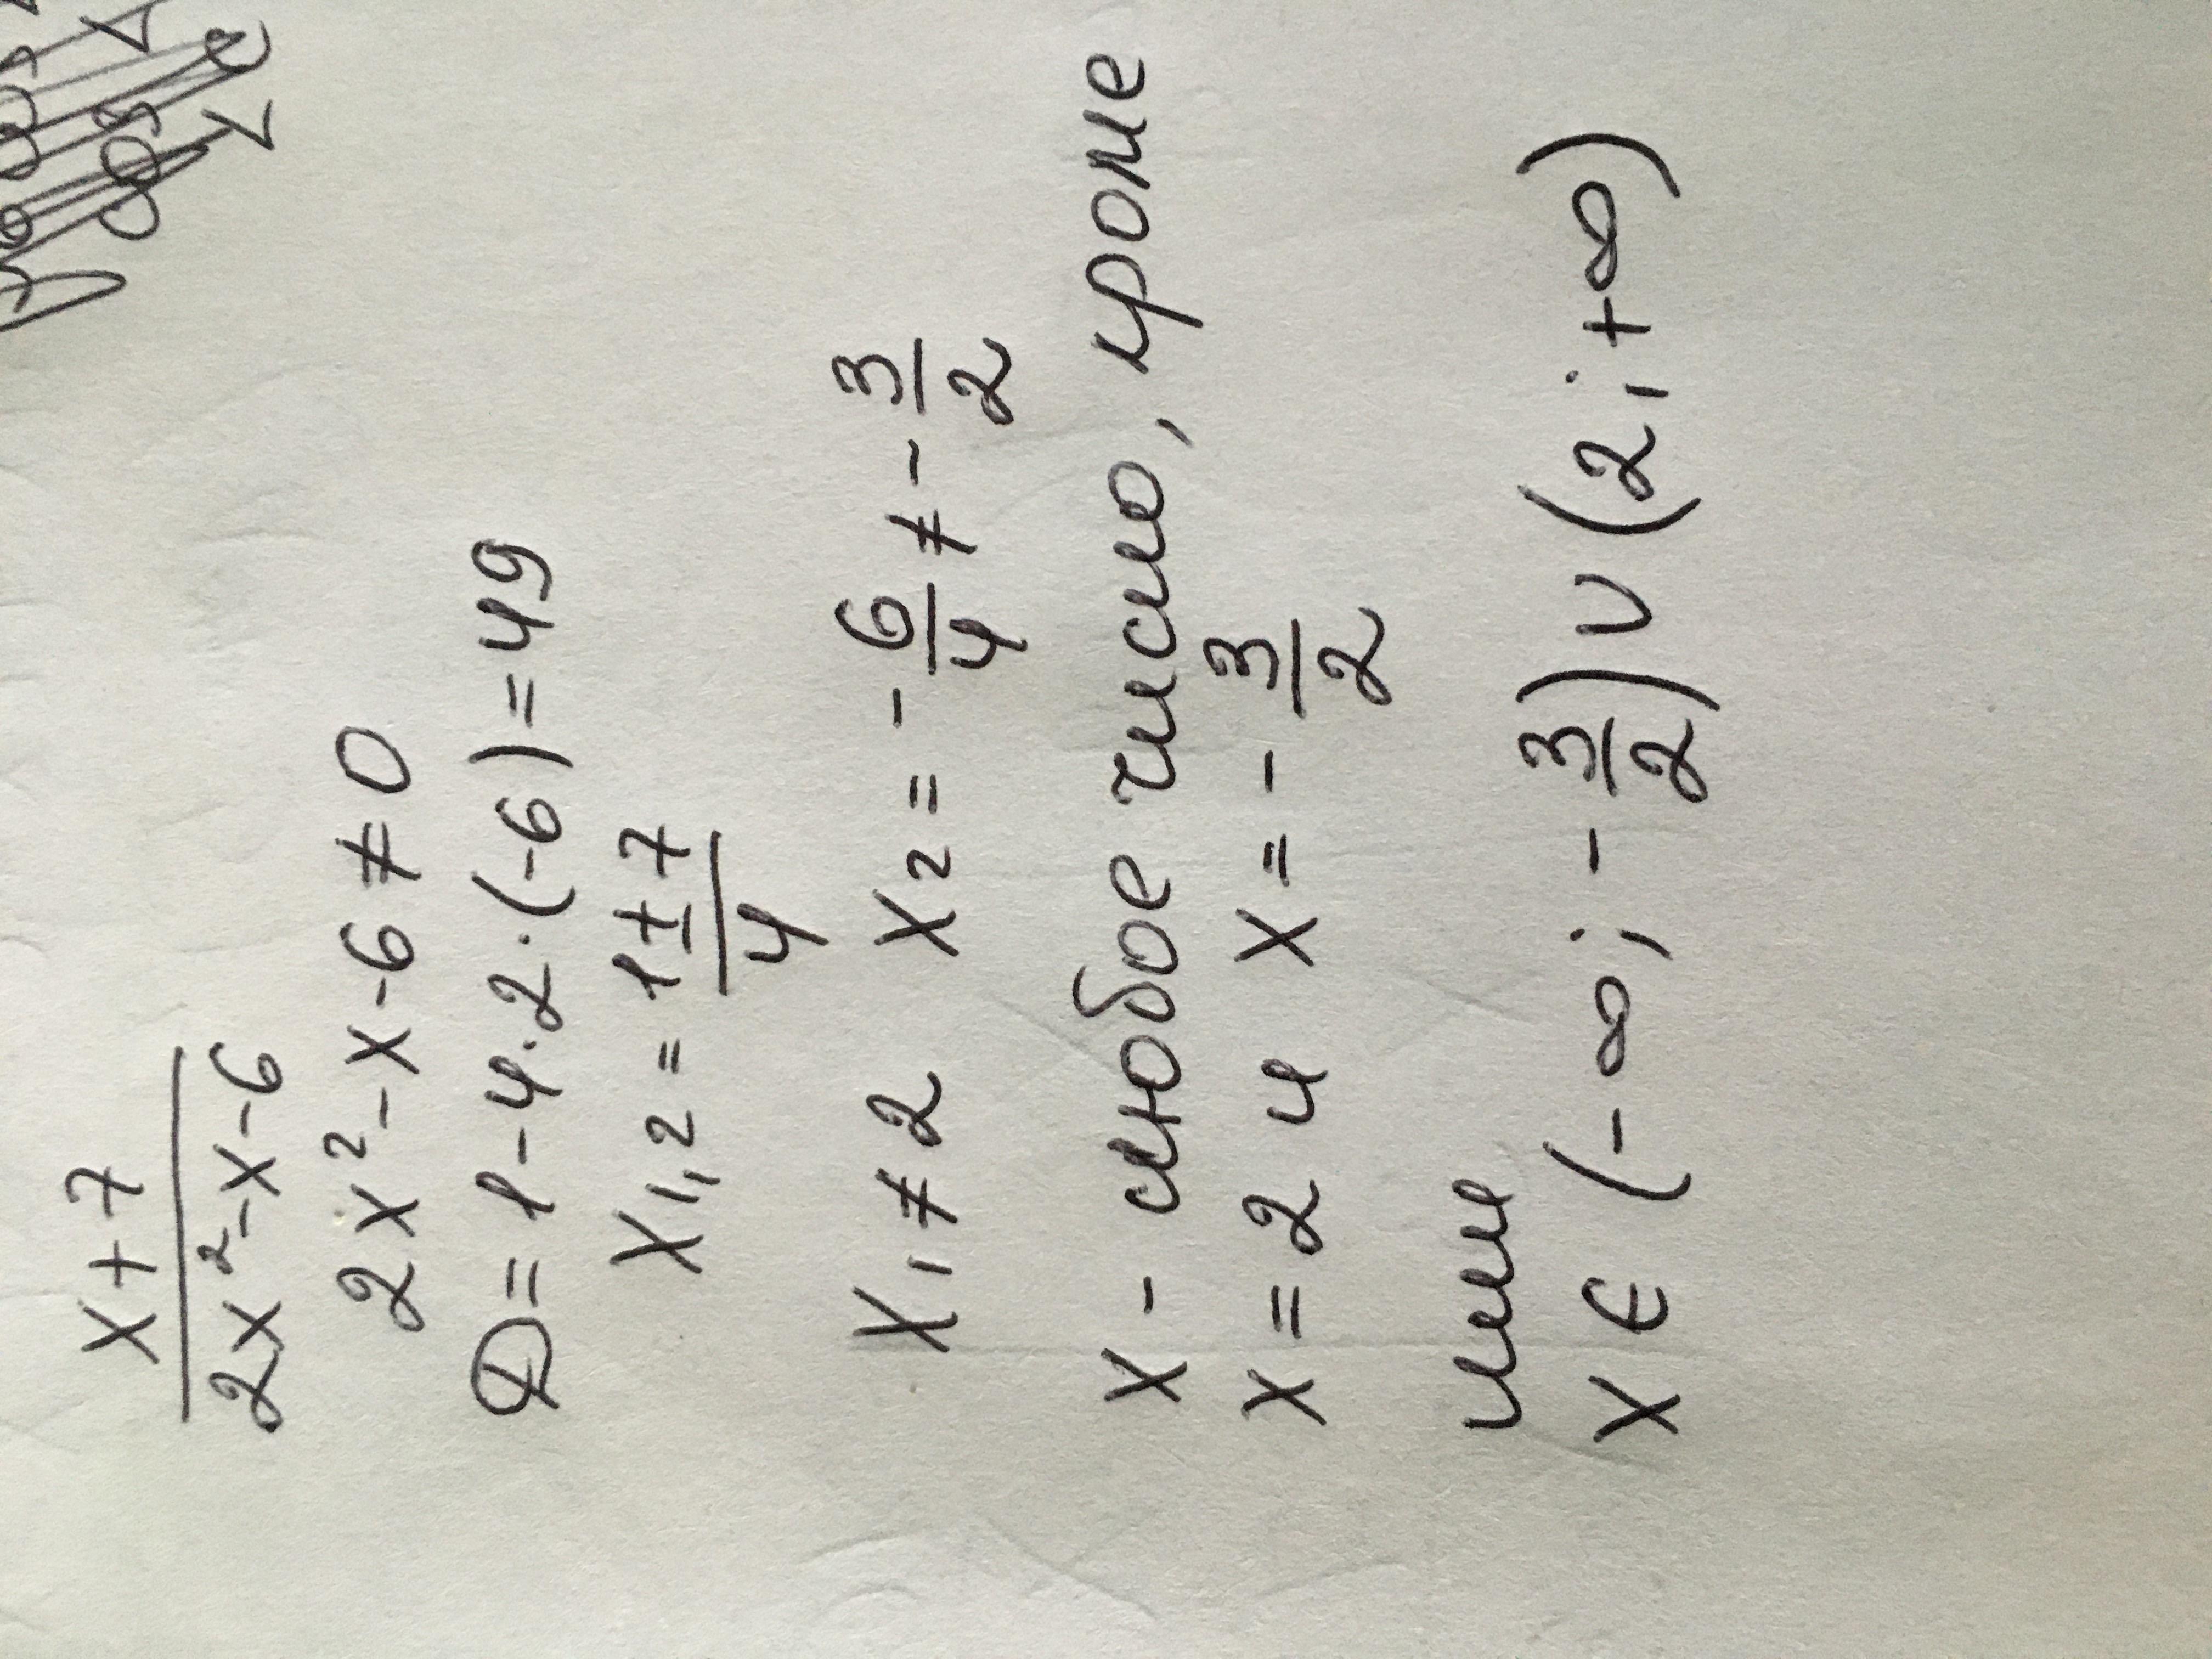 x+7
2x²-x-6
2x²-x-6≠0
D=1-4·2·(-6)=49
x₁,₂=1±7
4
x₁≠2 x₂=-6/4≠-3/2
x-любое число, кроме
x=2 и x=-3/2
или
x∈(-∞;-3/2)∪(2;+∞)